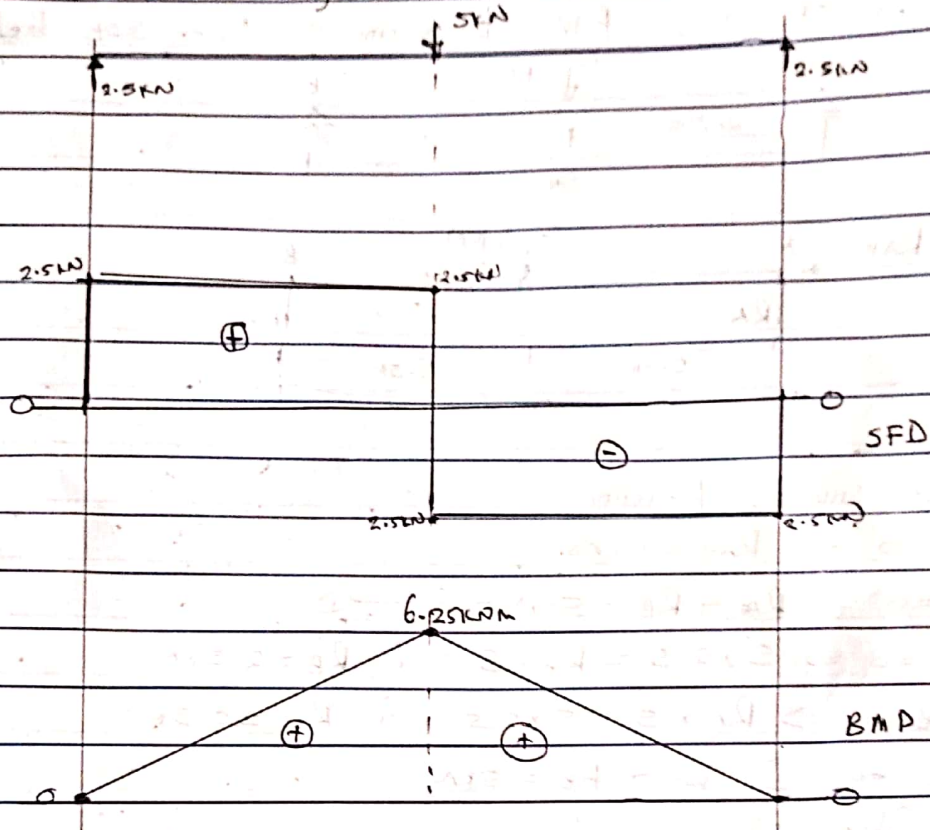 5KN
2.5KN 2.5KN
2.5KN 2.5KN
+
0 0
SFD
-
2.5KN 2.5KN
6.25KNm
BMD
+ +
0 0